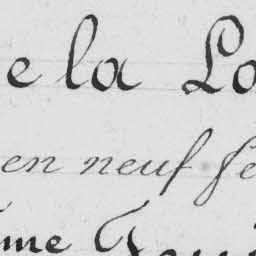 e la Lo
en neuf fe
me